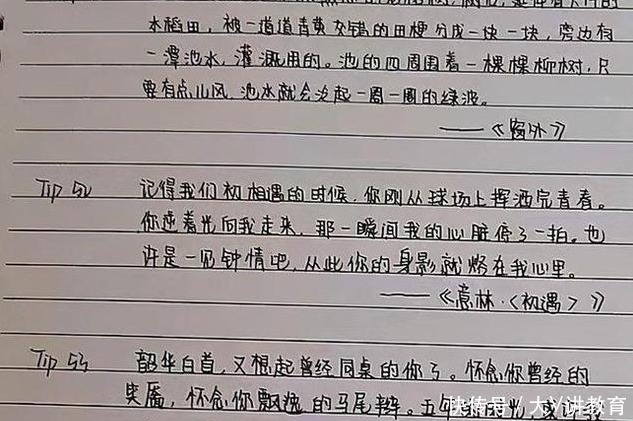 水稻田，被一道道青黄交错的田梗分成一块一块，旁边有
一潭池水，灌溉用的。池的四周围着一棵棵柳树，只
要有点儿风，池水就会泛起一圈一圈的绿波。
——《窗外》
Tip 52 记得我们初相遇的时候，你刚从球场上挥洒完青春。
你逆着光向我走来，那一瞬间我的心脏停了一拍。也
许是一见钟情吧，从此你的身影就烙在我心里。
——《意林·<初遇>》
Tip 53 韶华白首，又想起曾经同桌的你了。怀念你曾经的
笑靥，怀念你飘逸的马尾辫。五年
快传号 / 大丫讲教育